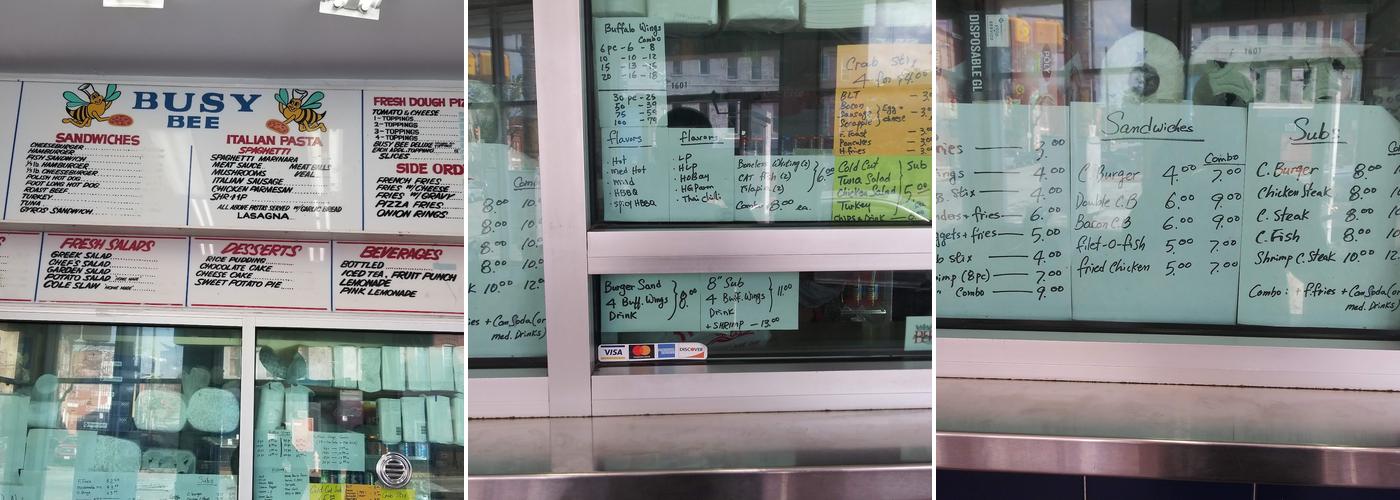 BUSY
BEE
SANDWICHES
CHEESEBURGER
HAMBURGER
FISH SANDWICH
1/2 lb. HAMBURGER
1/2 lb. CHEESEBURGER
POLISH HOT DOG
FOOT LONG HOT DOG
ROAST BEEF
TURKEY
TUNA
GYROS SANDWICH
ITALIAN PASTA
SPAGHETTI
SPAGHETTI MARINARA
MEAT SAUCE MEATBALLS
MUSHROOMS VEAL
ITALIAN SAUSAGE
CHICKEN PARMESAN
SHRIMP
ALL ABOVE PASTAS SERVED W/GARLIC BREAD
LASAGNA
FRESH DOUGH PIZ
TOMATO & CHEESE
1-TOPPING
2-TOPPINGS
3-TOPPINGS
4-TOPPINGS
BUSY BEE DELUXE
EACH ADDL. TOPPING
SLICES
SIDE ORD
FRENCH FRIES
FRIES W/CHEESE
FRIES W/GRAVY
PIZZA FRIES
ONION RINGS
FRESH SALADS
GREEK SALAD
CHEF'S SALAD
GARDEN SALAD
POTATO SALAD HOME MADE
COLE SLAW HOME MADE
DESSERTS
RICE PUDDING
CHOCOLATE CAKE
CHEESE CAKE
SWEET POTATO PIE
BEVERAGES
BOTTLED
ICED TEA, FRUIT PUNCH
LEMONADE
PINK LEMONADE
Subs
8.00 10.
8.00 10.
8.00 10.
8.00 10.
K 10.00 12.
ies + Can Soda (or
med. Drinks)
Buffalo Wings
Combo
6 pc - 6 - 8
10 - 8 - 10
15 - 13 - 15
20 - 16 - 18
30 pc - 25
50 - 39
75 - 59
100 - 79
flavors
. Hot
. med Hot
. mild
. HBBQ
. Spicy HBBQ
flavors
. LP
. HLP
. HoBay
. HG Parm
. Thai chili
Boneless Whiting (2)
CAT fish (2)
Tilapia (2)
6.00
Combo 8.00 ea.
Crab Stix
4 for $4.00
BLT
Bacon
Sausage
Scrapple
Egg
cheese
T. Toast
Pancakes
H. fries
Cold Cut
Tuna Salad
Chicken Salad
Turkey
Sub
5.00
Chips & Drink
Burger Sand
4 Buff. Wings
Drink
8.00
8" Sub
4 Buff. Wings
Drink
11.00
+ SHRIMP - 13.00
VISA
MasterCard
DISCOVER
1601
DISPOSABLE GL
POLY
1601
ries 3.00
ngs 4.00
. Stix 4.00
nders + fries 6.00
ggets + fries 5.00
b stix 4.00
imp (8pc) 7.00
Combo 9.00
Sandwiches
Combo
C. Burger 4.00 7.00
Double C.B 6.00 9.00
Bacon C.B 6.00 9.00
filet-o-fish 5.00 7.00
fried Chicken 5.00 7.00
Subs
C. Burger 8.00 10.
Chicken Steak 8.00 10.
C. Steak 8.00 10.
C. Fish 8.00 10.
Shrimp C. Steak 10.00 12.
Combo: + f.fries + Can Soda (or
med. Drinks)